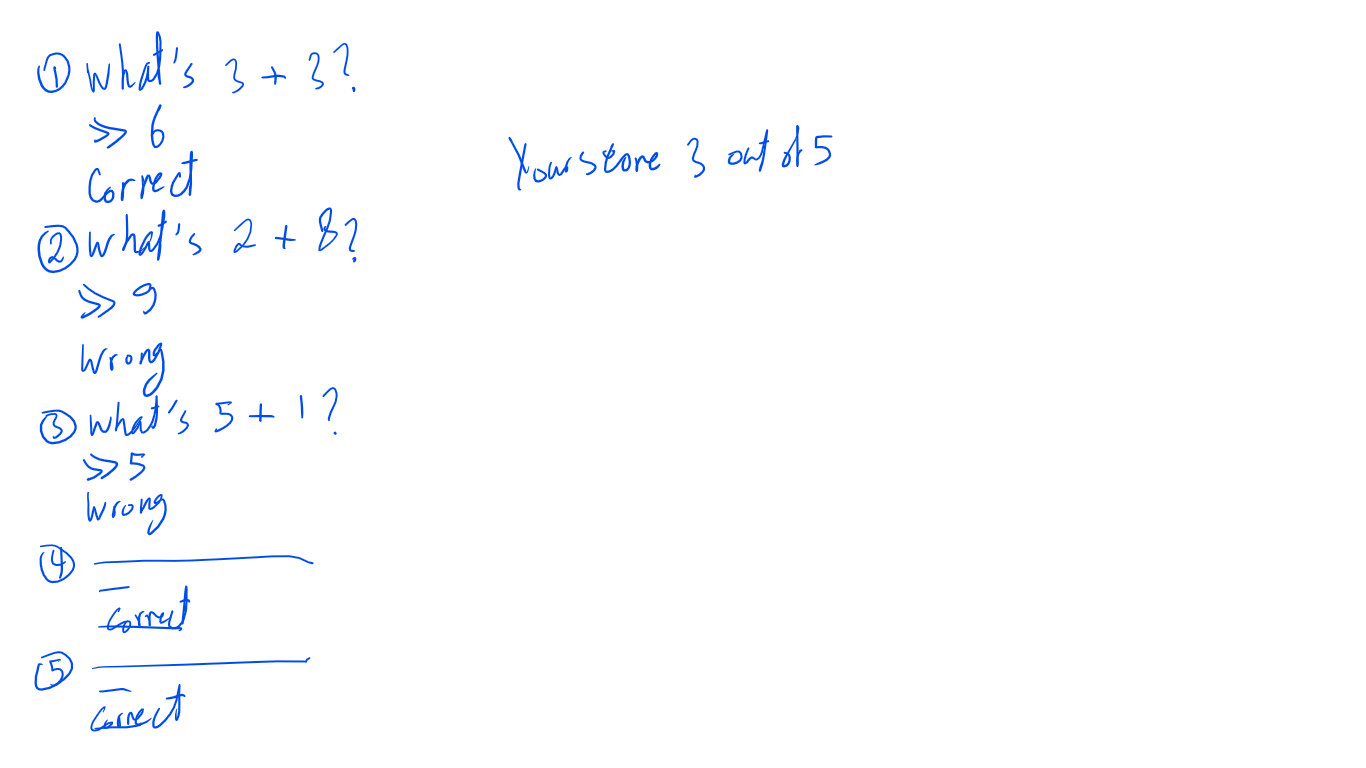 ① What's 3 + 3?
≫ 6
Correct
② What's 2 + 8?
≫ 9
Wrong
③ What's 5 + 1?
≫ 5
Wrong
④
Correct
⑤
Correct
Your score 3 out of 5